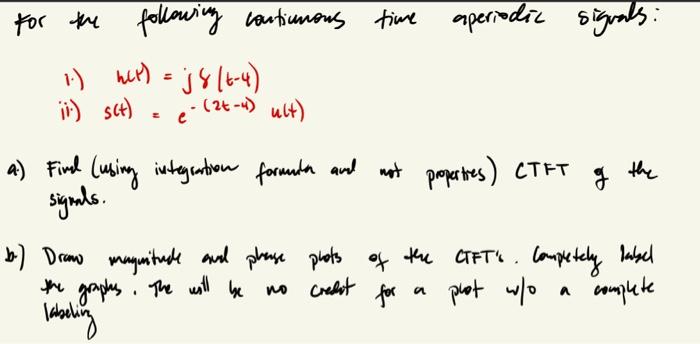 For the following continuous time aperiodic signals:
i.) h(t) = jδ(t-4)
ii) s(t) = e^-(2t-4) u(t)
a) Find (using integration formula and not properties) CTFT of the
signals.
b.) Draw magnitude and phase plots of the CTFT's. Completely label
the graphs. The will be no credit for a plot w/o a complete
labeling